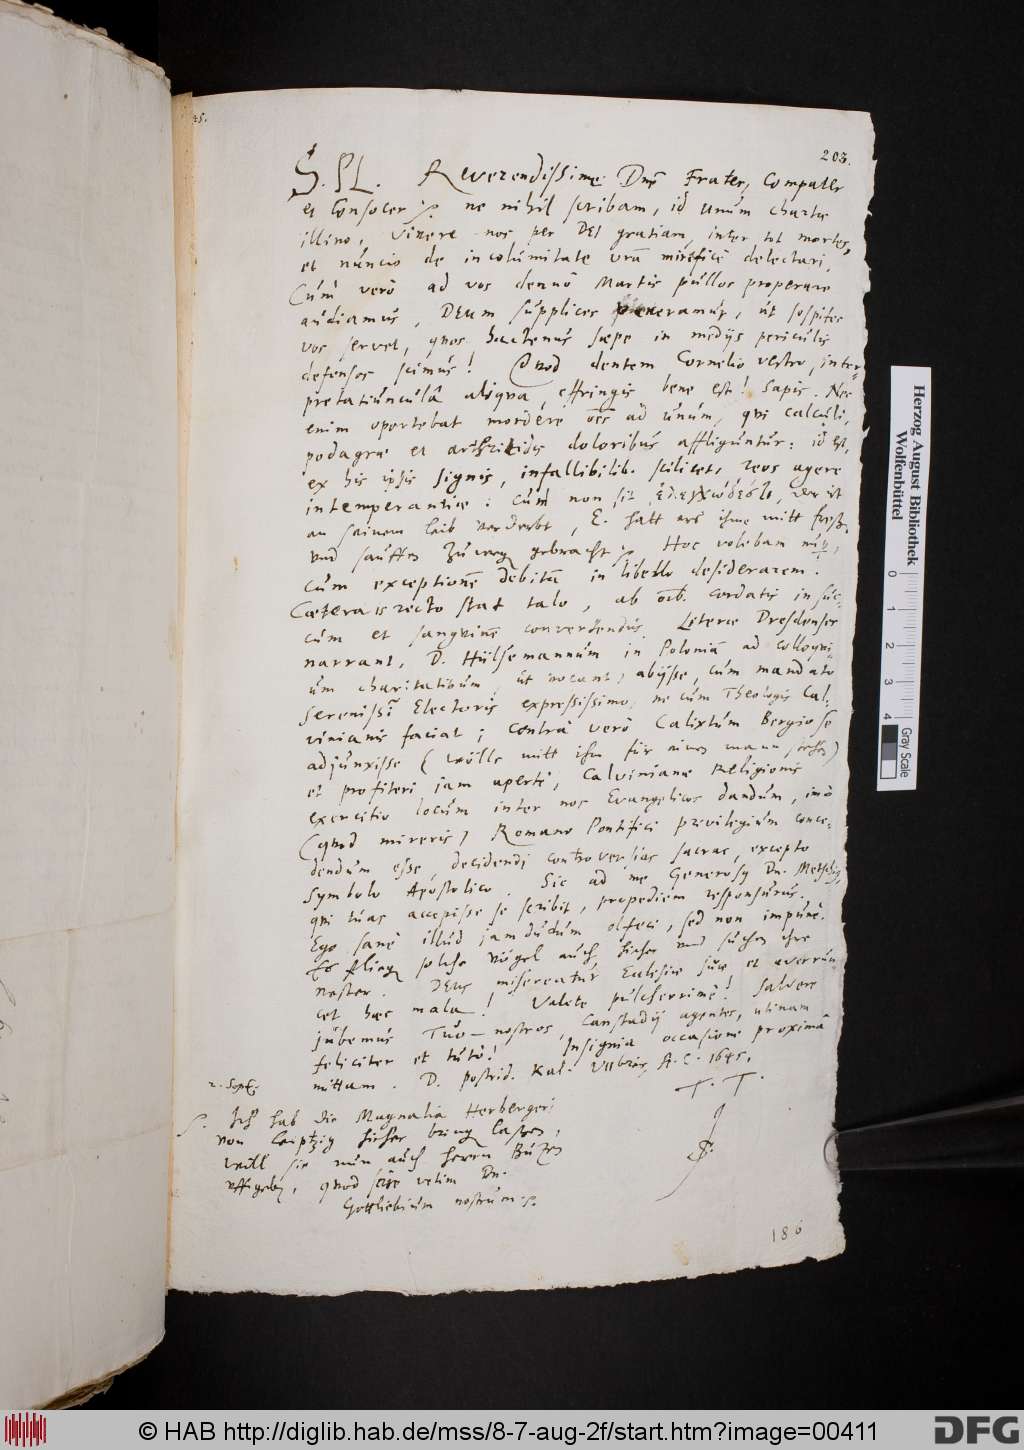 203.
S. Pl. Reverendissime Dne Frater, Compater
et Consocer ne nihil scribam, id unum chartae
illino, vivere nos per DEI gratiam, inter tot mortes,
et nuncio de incolumitate vrā mirificè delectari.
Cùm verò ad vos denuò Martis pullos properare
audiamus, DEum supplices veneramur, ut sospites
vos servet, quos hactenus saepe in medijs periculis
defensos scimus! Quod dentem Cornelio vestro, inter-
pretatiunculâ aliqvâ, effringis bene est! Sapis. Nec
enim oportebat mordere oēs ad unum, qui calculi,
podagrae et arthritidis doloribus affliguntur: id est,
ex his ipsis signis, infallibilib. scilicet, reos agere
intemperantiae: cùm non sit, wer ist
an seinem leib verderbt, E. hatt ers ihme mitt freß.
vnd sauffen zu weg gebracht Hoc volebam
cum exceptionē debitâ in libello desiderarem.
Caetera recto stat talo, ab oīb. cordatis in suc-
cum et sanguinē convertendus. Literae Dresdenses
narrant, D. Hülsemannum in Poloniā ad colloqui-
um charitativum, ut vocant, abijsse, cum mandato
Serenissī Electoris expressissimo, ne cum Theologis Cal-
vinianis faciat; contrà verò Calixtum Bergio se
adjunxisse (wölle mitt ihm für einen mann stehen)
et profiteri jam apertè, Calvinianae Religionis
exercitio locum inter nos Evangelicos dandum, imò
(quod mireris) Romano Pontifici privilegium conce-
dendum esse, decidendi controversias sacras, excepto
Symbolo Apostolico. Sic ad me Generosq Dn. Metschig,
qui tuas accepisse se scribit, propediem responsurus.
Ego sanè illud jamdudum olfeci, sed non impunè.
Es fliegn solche vögel auch hieher vnd suchen ihre
nester. DEus misereatur Ecclesiae suae et averrun-
cet haec mala! Valete pulcherrimè! Salvere
jubemus Tuo- nostros, Canstadij agentes, utinam
feliciter et tutò! Insignia occasione proximâ
mittam. D. postrid. Kal. VIIbris, A. C. 1645.
2. Sept.
T. T.
S. Ich hab die Magnalia Herbergeri
von Leiptzig hieher bring lassen,
will sie nun auch herrn
vffgeben, quod scire velim Dn.
Gottliebium nostrum.
186
Herzog August Bibliothek
Wolfenbüttel
0 1 2 3 4
Gray Scale
© HAB http://diglib.hab.de/mss/8-7-aug-2f/start.htm?image=00411
DFG